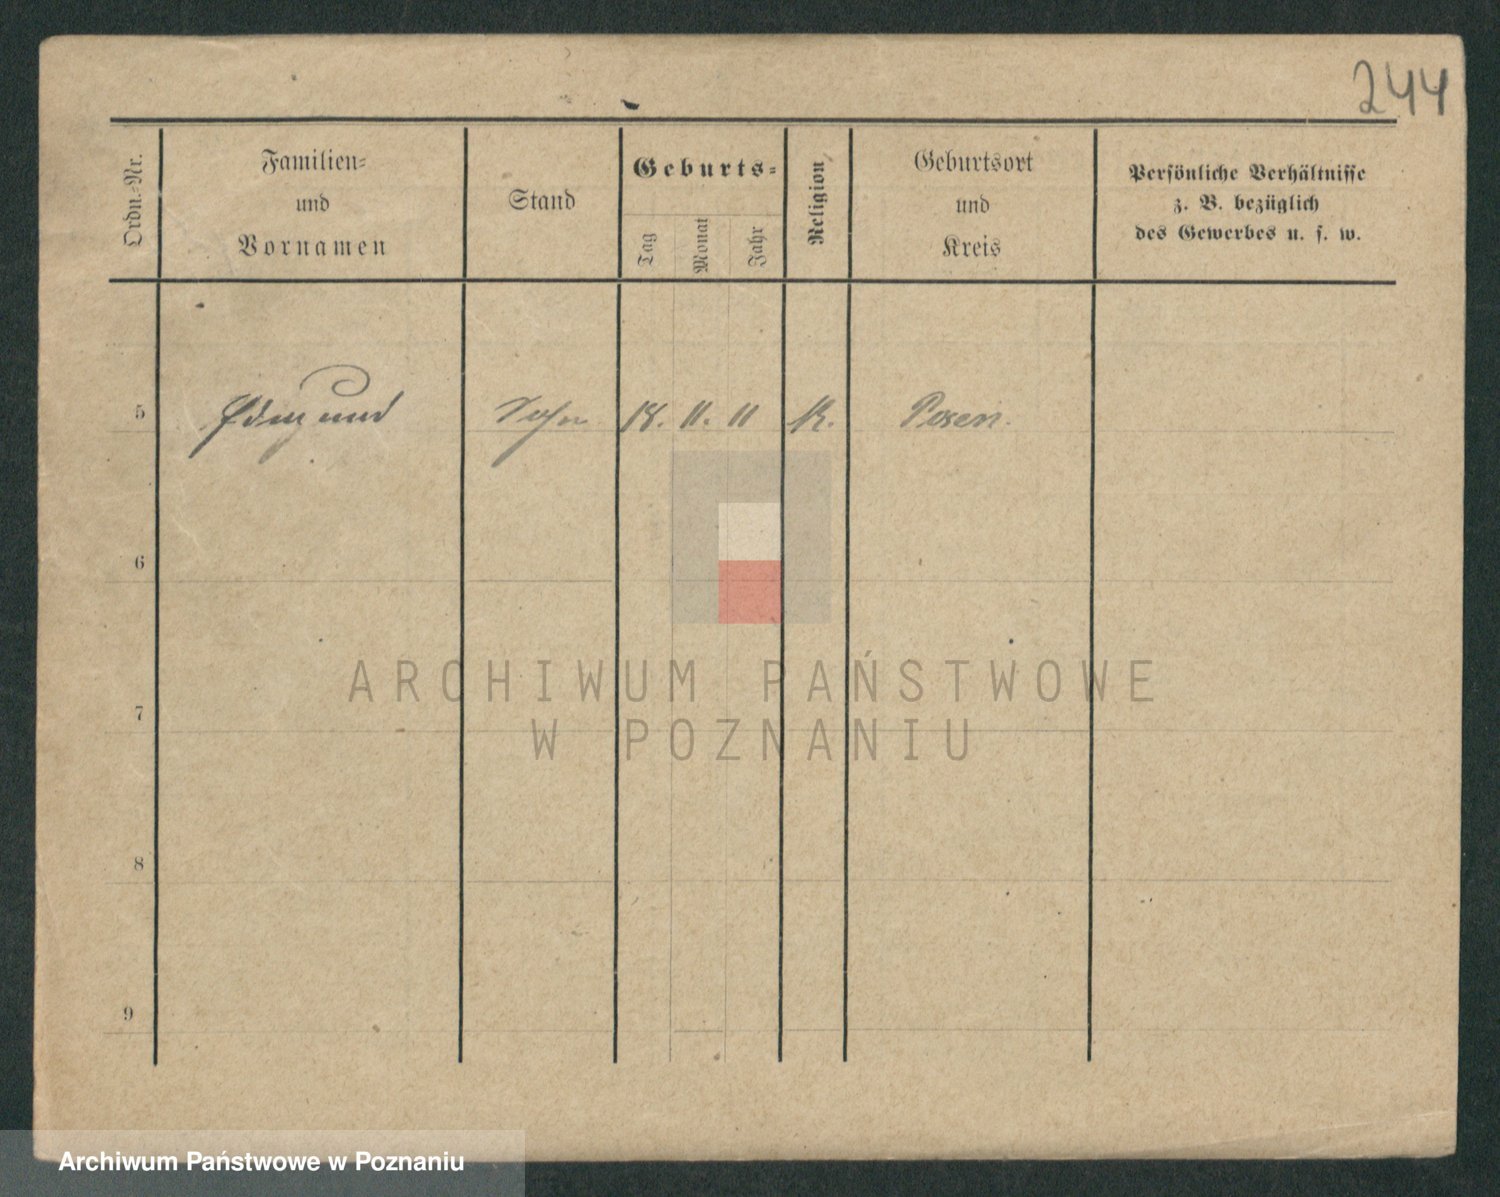 244
Ordn.-Nr.
Familien-
und
Vornamen
Stand
Geburts-
Tag
Monat
Jahr
Religion
Geburtsort
und
Kreis
Persönliche Verhältnisse
z. B. bezüglich
des Gewerbes u. s. w.
5 Edmund Sohn 18. 11. 11 K. Posen.
6
7
8
9
ARCHIWUM PAŃSTWOWE
W POZNANIU
Archiwum Państwowe w Poznaniu